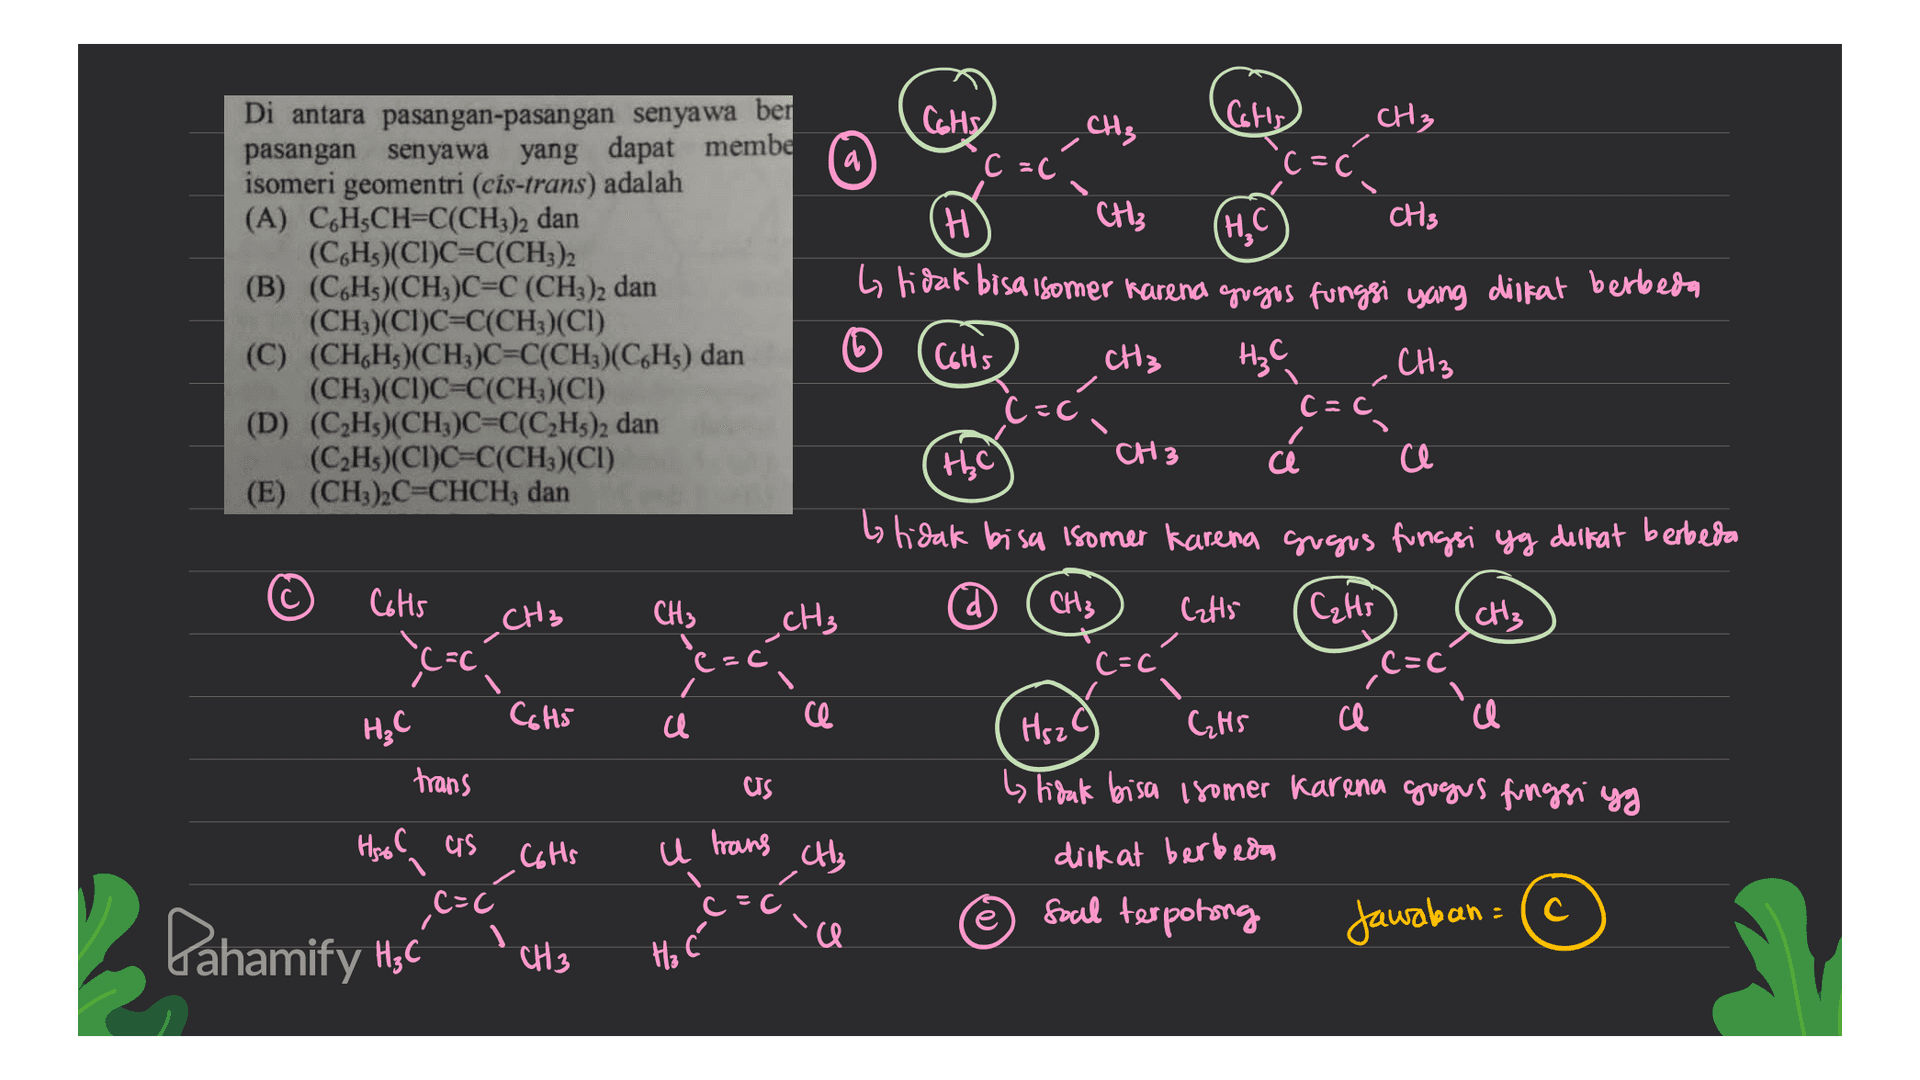 Di antara pasangan-pasangan senyawa ber
pasangan senyawa yang dapat membe
isomeri geomentri (cis-trans) adalah
(A) C₆H₅CH=C(CH₃)₂ dan
(C₆H₅)(Cl)C=C(CH₃)₂
(B) (C₆H₅)(CH₃)C=C (CH₃)₂ dan
(CH₃)(Cl)C=C(CH₃)(Cl)
(C) (CH₆H₅)(CH₃)C=C(CH₃)(C₆H₅) dan
(CH₃)(Cl)C=C(CH₃)(Cl)
(D) (C₂H₅)(CH₃)C=C(C₂H₅)₂ dan
(C₂H₅)(Cl)C=C(CH₃)(Cl)
(E) (CH₃)₂C=CHCH₃ dan
a
C₆H₅ CH₃ C₆H₅ CH₃
C=C C=C
H CH₃ H₃C CH₃
↳ tidak bisa isomer karena gugus fungsi yang diikat berbeda
b
C₆H₅ CH₃ H₃C CH₃
C=C C=C
H₃C CH₃ Cl Cl
↳ tidak bisa isomer karena gugus fungsi yg diikat berbeda
c
C₆H₅ CH₃ CH₃ CH₃
C=C C=C
H₃C C₆H₅ Cl Cl
trans cis
H₅₆C cis C₆H₅ Cl trans CH₃
C=C C=C
H₃C CH₃ H₃C Cl
d
CH₃ C₂H₅ C₂H₅ CH₃
C=C C=C
H₅₂C C₂H₅ Cl Cl
↳ tidak bisa isomer karena gugus fungsi yg
diikat berbeda
e soal terpotong
Jawaban = C
Pahamify